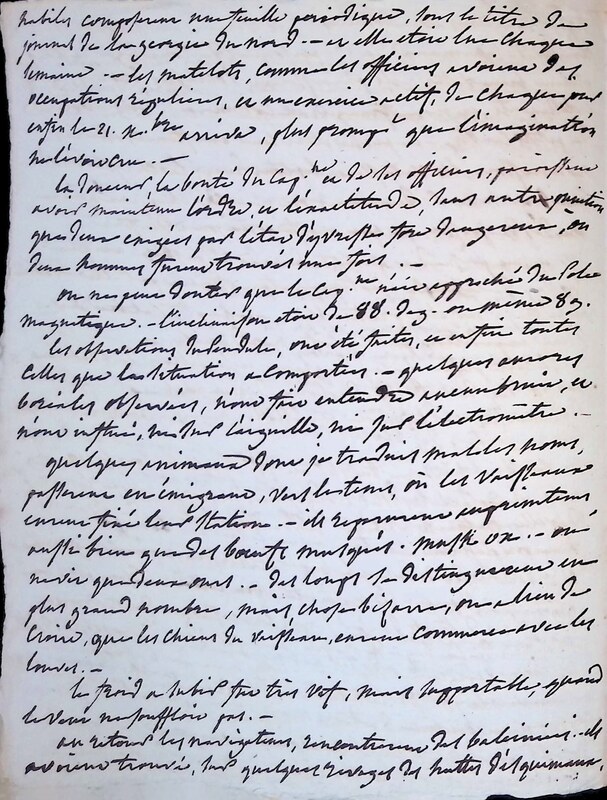 habiles composerent une feuille periodique, sous le titre de
journal de la georgie du nord – et elle etoit lue chaque
semaine. – les matelots, comme les officiers avoient des
occupations régulieres, et un exercice actif, de chaque jour
enfin le 21. n.bre arriva, plus prompt que l'imagination
ne l'avoit cru. –
la douceur, la bonté du cap.ne et de ses officiers, paroissent
avoir maintenu l'ordre, et l'exactitude, sans autre punition
que deux exigées par l'état d'yvresse fort dangereux, où
deux hommes furent trouvés une fois. –
on ne peut douter que le cap.ne n'ait approché du Pole
magnetique. – l'inclinaison etoit de 88. deg. ou même 89.
les observations du Pendule, ont été faites, et enfin toutes
celles que la situation a comportées. – quelques aurores
boréales observées, n'ont fait entendre aucun bruit, et
n'ont influé, ni sur l'aiguille, ni sur l'électrometre. –
quelques animaux dont je traduis mal les noms,
passerent en émigrant, vers le tems, où les vaisseaux
eurent fixé leur station. – ils reparurent au printems
aussi bien que des bœufs musqués. musk ox. – on
ne vit que deux ours. – des loups se distinguerent en
plus grand nombre, mais, chose bizarre, on a lieu de
croire, que les chiens du vaisseau, eurent commerce avec les
louves. –
le froid a subir fut très vif, mais supportable, quand
le vent ne souffloit pas. –
au retour les navigateurs, rencontrerent des baleiniers. ils
avoient trouvé, sur quelques rivages des huttes d'esquimaux,